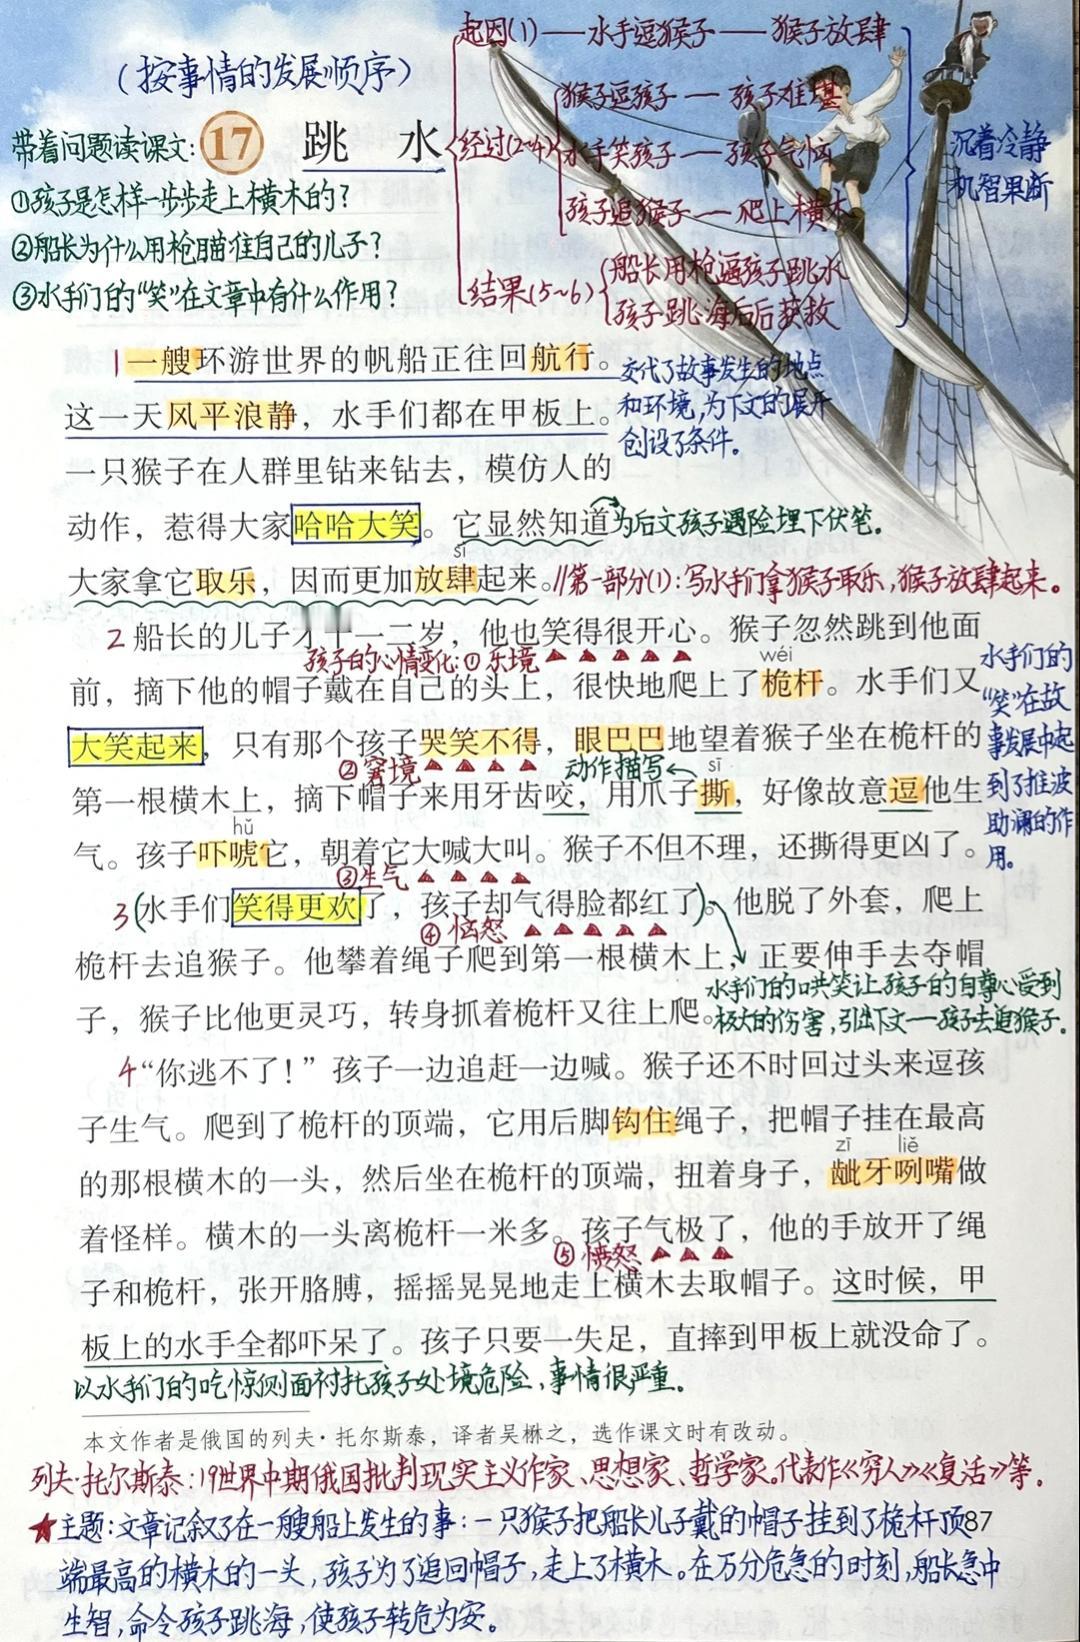 （按事情的发展顺序）
起因(1)——水手逗猴子——猴子放肆
猴子逗孩子——孩子难堪
经过(2~4)
水手笑孩子——孩子气恼
孩子追猴子——爬上横木
结果(5~6)
船长用枪逼孩子跳水
孩子跳海后后获救
沉着冷静
机智果断
17 跳水
带着问题读课文:
①孩子是怎样一步步走上横木的?
②船长为什么用枪瞄准自己的儿子?
③水手们的“笑”在文章中有什么作用?
1 一艘环游世界的帆船正往回航行。
这一天风平浪静，水手们都在甲板上。
交代了故事发生的地点
和环境,为下文的展开
创设了条件。
一只猴子在人群里钻来钻去，模仿人的
动作，惹得大家哈哈大笑。它显然知道
为后文孩子遇险埋下伏笔。
sì
大家拿它取乐，因而更加放肆起来。
//第一部分(1):写水手们拿猴子取乐,猴子放肆起来。
2 船长的儿子才十一二岁，他也笑得很开心。猴子忽然跳到他面
孩子的心情变化:①乐境
wéi
前，摘下他的帽子戴在自己的头上，很快地爬上了桅杆。水手们又
大笑起来，只有那个孩子哭笑不得，眼巴巴地望着猴子坐在桅杆的
②窘境
动作描写
sī
第一根横木上，摘下帽子来用牙齿咬，用爪子撕，好像故意逗他生
hǔ
气。孩子吓唬它，朝着它大喊大叫。猴子不但不理，还撕得更凶了。
③生气
水手们的
“笑”在故
事发展中起
到了推波
助澜的作
用。
3 (水手们笑得更欢了，孩子却气得脸都红了)。他脱了外套，爬上
④恼怒
桅杆去追猴子。他攀着绳子爬到第一根横木上，正要伸手去夺帽
子，猴子比他更灵巧，转身抓着桅杆又往上爬。
水手们的哄笑让孩子的自尊心受到
极大的伤害,引出下文——孩子去追猴子.
4 “你逃不了！”孩子一边追赶一边喊。猴子还不时回过头来逗孩
子生气。爬到了桅杆的顶端，它用后脚钩住绳子，把帽子挂在最高
zī liě
的那根横木的一头，然后坐在桅杆的顶端，扭着身子，龇牙咧嘴做
着怪样。横木的一头离桅杆一米多。孩子气极了，他的手放开了绳
⑤愤怒
子和桅杆，张开胳膊，摇摇晃晃地走上横木去取帽子。这时候，甲
板上的水手全都吓呆了。孩子只要一失足，直摔到甲板上就没命了。
以水手们的吃惊侧面衬托孩子处境危险,事情很严重。
本文作者是俄国的列夫·托尔斯泰，译者吴楙之，选作课文时有改动。
列夫·托尔斯泰:19世界中期俄国批判现实主义作家、思想家、哲学家。代表作《穷人》《复活》等.
★主题:文章记叙了在一艘船上发生的事:一只猴子把船长儿子戴的帽子挂到了桅杆顶
87
端最高的横木的一头,孩子为了追回帽子,走上了横木。在万分危急的时刻,船长急中
生智,命令孩子跳海,使孩子转危为安。